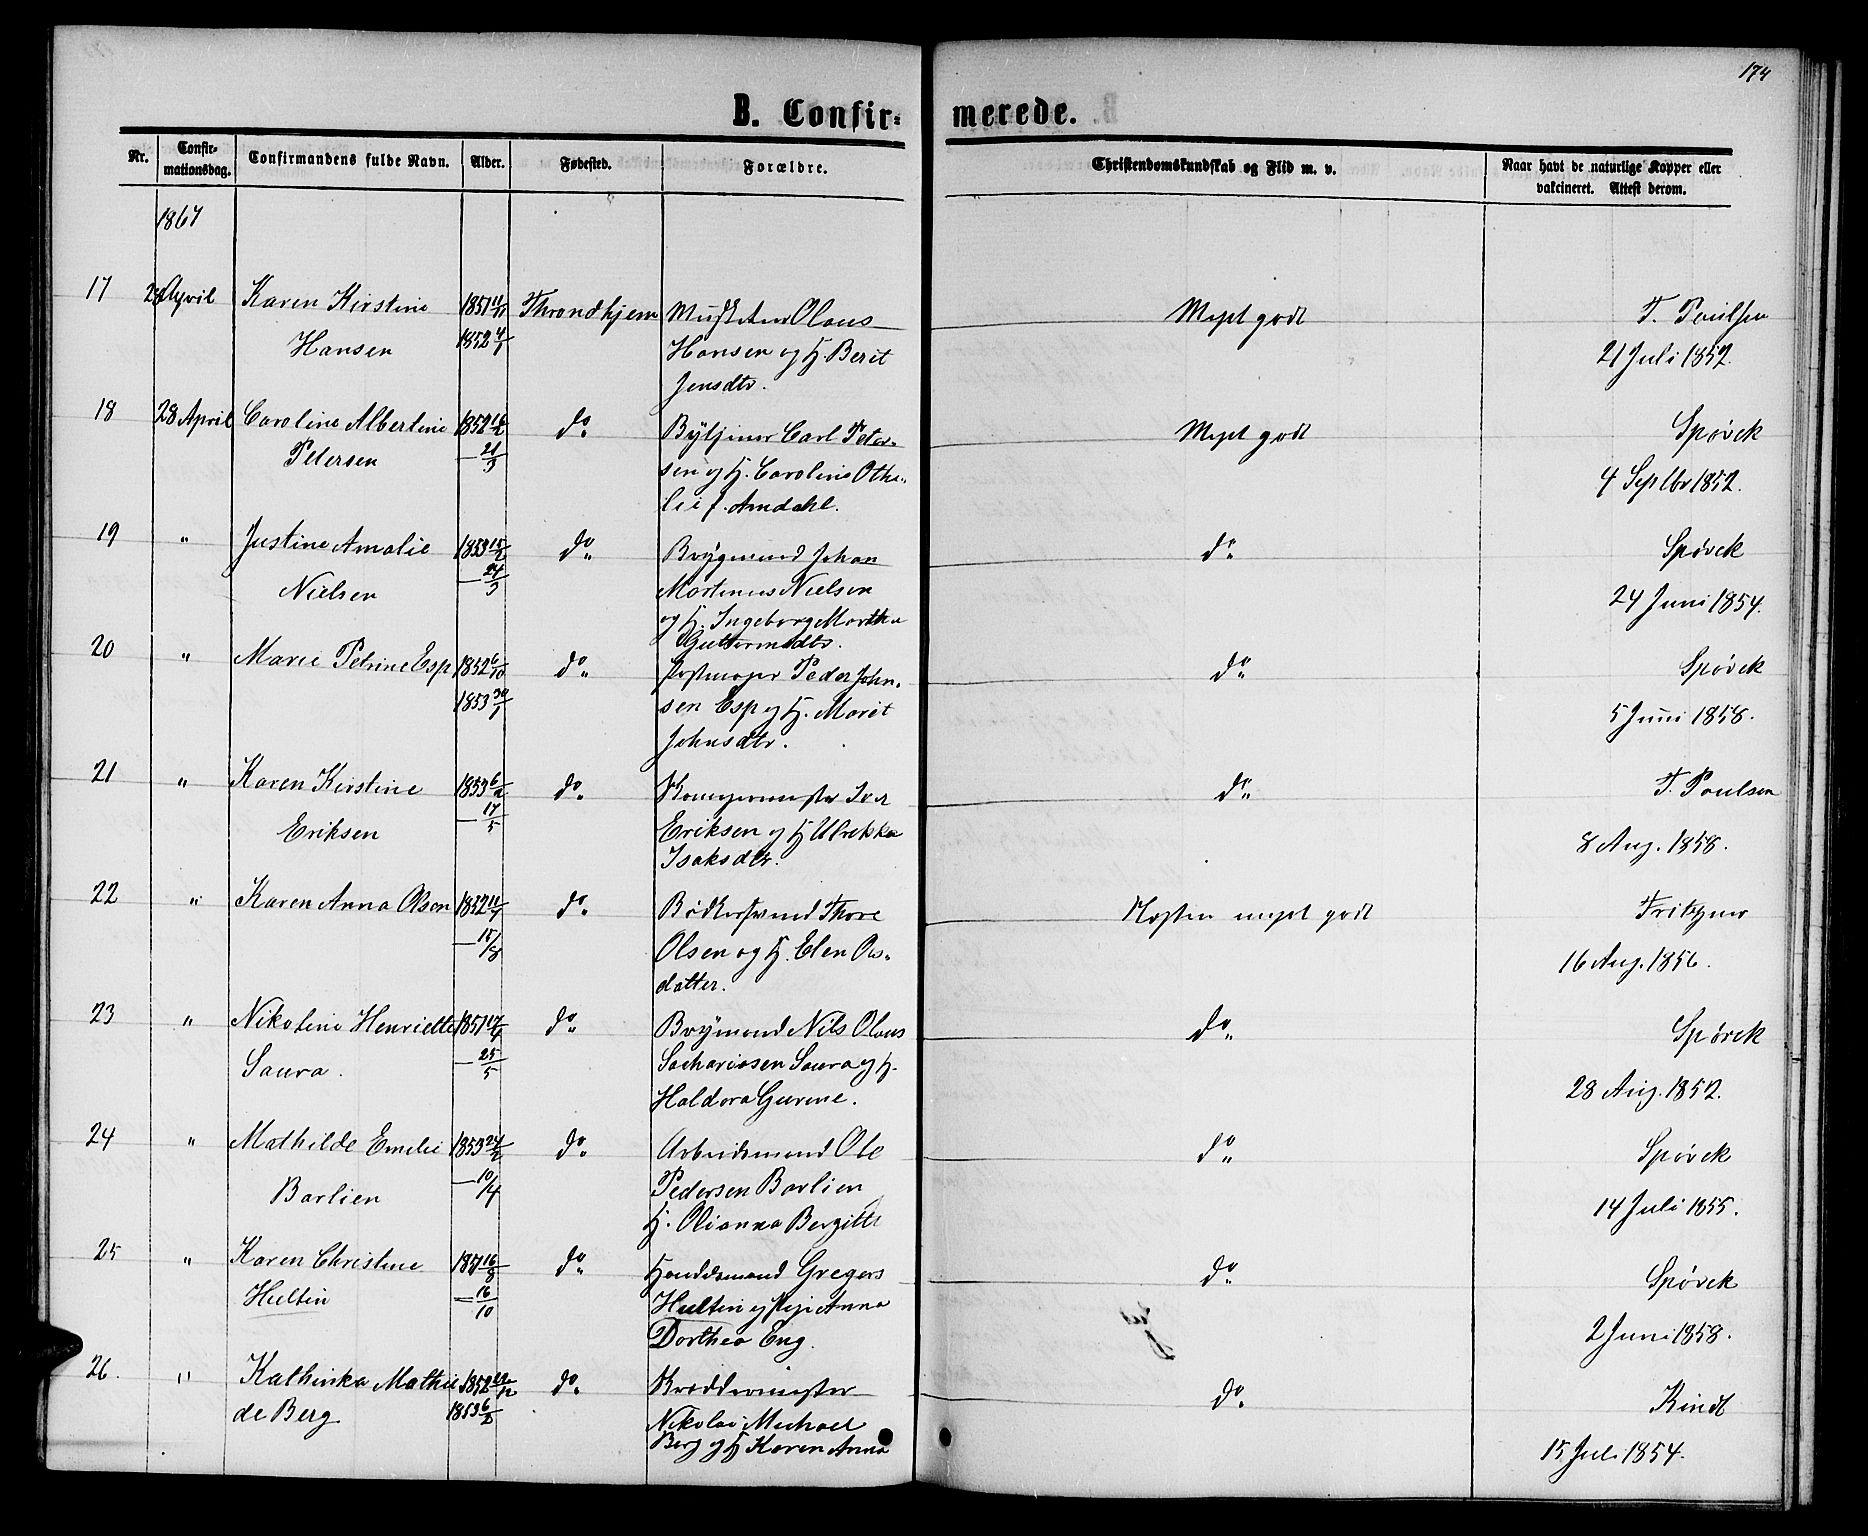 174
B. Confirmerede.
Nr. Confirmationsdag. Confirmandens fulde Navn. Alder. Fødested. Forældre. Christendomskundskab og Flid m. v. Naar havt de naturlige Kopper eller vakcineret. Attest derom.
1867
17 April Karen Kirstine 1851 Throndhjem Olaus Meget godt T. Poulsen
Hansen 1852 4/1 Hansen og H. Berit 21 Juli 1852.
Jensdtr.
18 28 April Caroline Albertine 1852 do Carl Peter- Meget godt Spørck
Petersen — 21/3 sen og H. Caroline Otha- 4 Septbr 1852.
lie f. Amdahl.
19 " Justine Amalie 1853 15/2 do Johan do Spørck
Nielsen — 24/3 Martinus Nielsen 24 Juni 1854.
og H. Ingeborg Martha
20 " Marie Petrine Esp 1852 6/10 do Peder John- do Spørck
1853 30/1 sen Esp og H. Marit 5 Juni 1858.
Johnsdtr.
21 " Karen Kirstine 1853 6/2 do Iver do T. Poulsen
Eriksen — 17/5 Eriksen og H Ulrikka 8 Aug. 1858.
Isaksdtr.
22 " Karen Anna Olsen 1852 11/7 do Bødkersvend Thore Næsten meget godt
— 15/8 Olsen og H. Elen Ols- 16 Aug. 1856.
datter.
23 " Nikoline Henriette 1851 17/4 do Nils Olaus do Spørck
Saura. — 25/5 Sachariasen Saura og H. 28 Aug. 1852.
Haldora Gurine.
24 " Mathilde Emilie 1853 24/2 do Arbeidsmand Ole do Spørck
Barlien — 10/4 Pedersen Barlien 14 Juli 1855.
H. Olianna Bergitte
25 " Karen Christine 1851 16/8 do Handelsmand Gregers do Spørck
Hultin — 16/10 Hultin og Pige Anna 2 Juni 1858.
Dorthea Eng.
26. " Kathinka Mathil- 1852 do Skræddermester do Kindt
de Berg 1853 6/2 Nikolai Michael 15 Juli 1854.
Berg og H Karen Anna